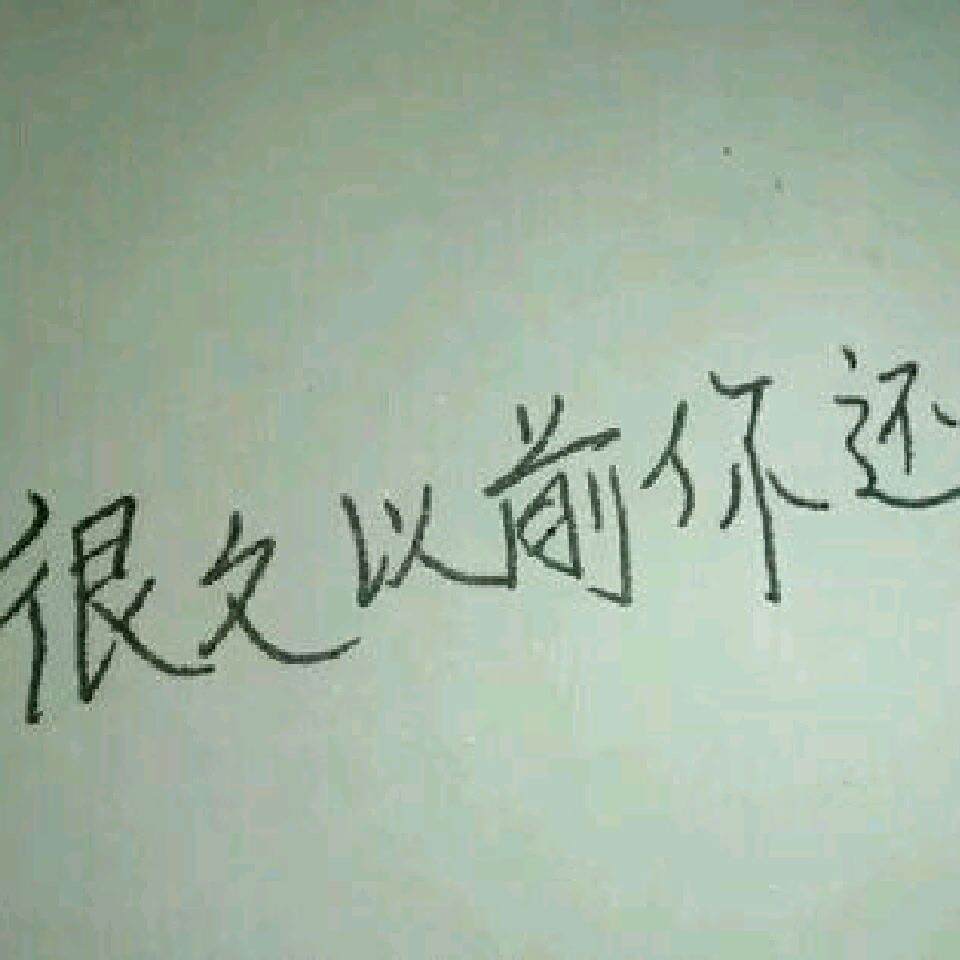 很久以前你还